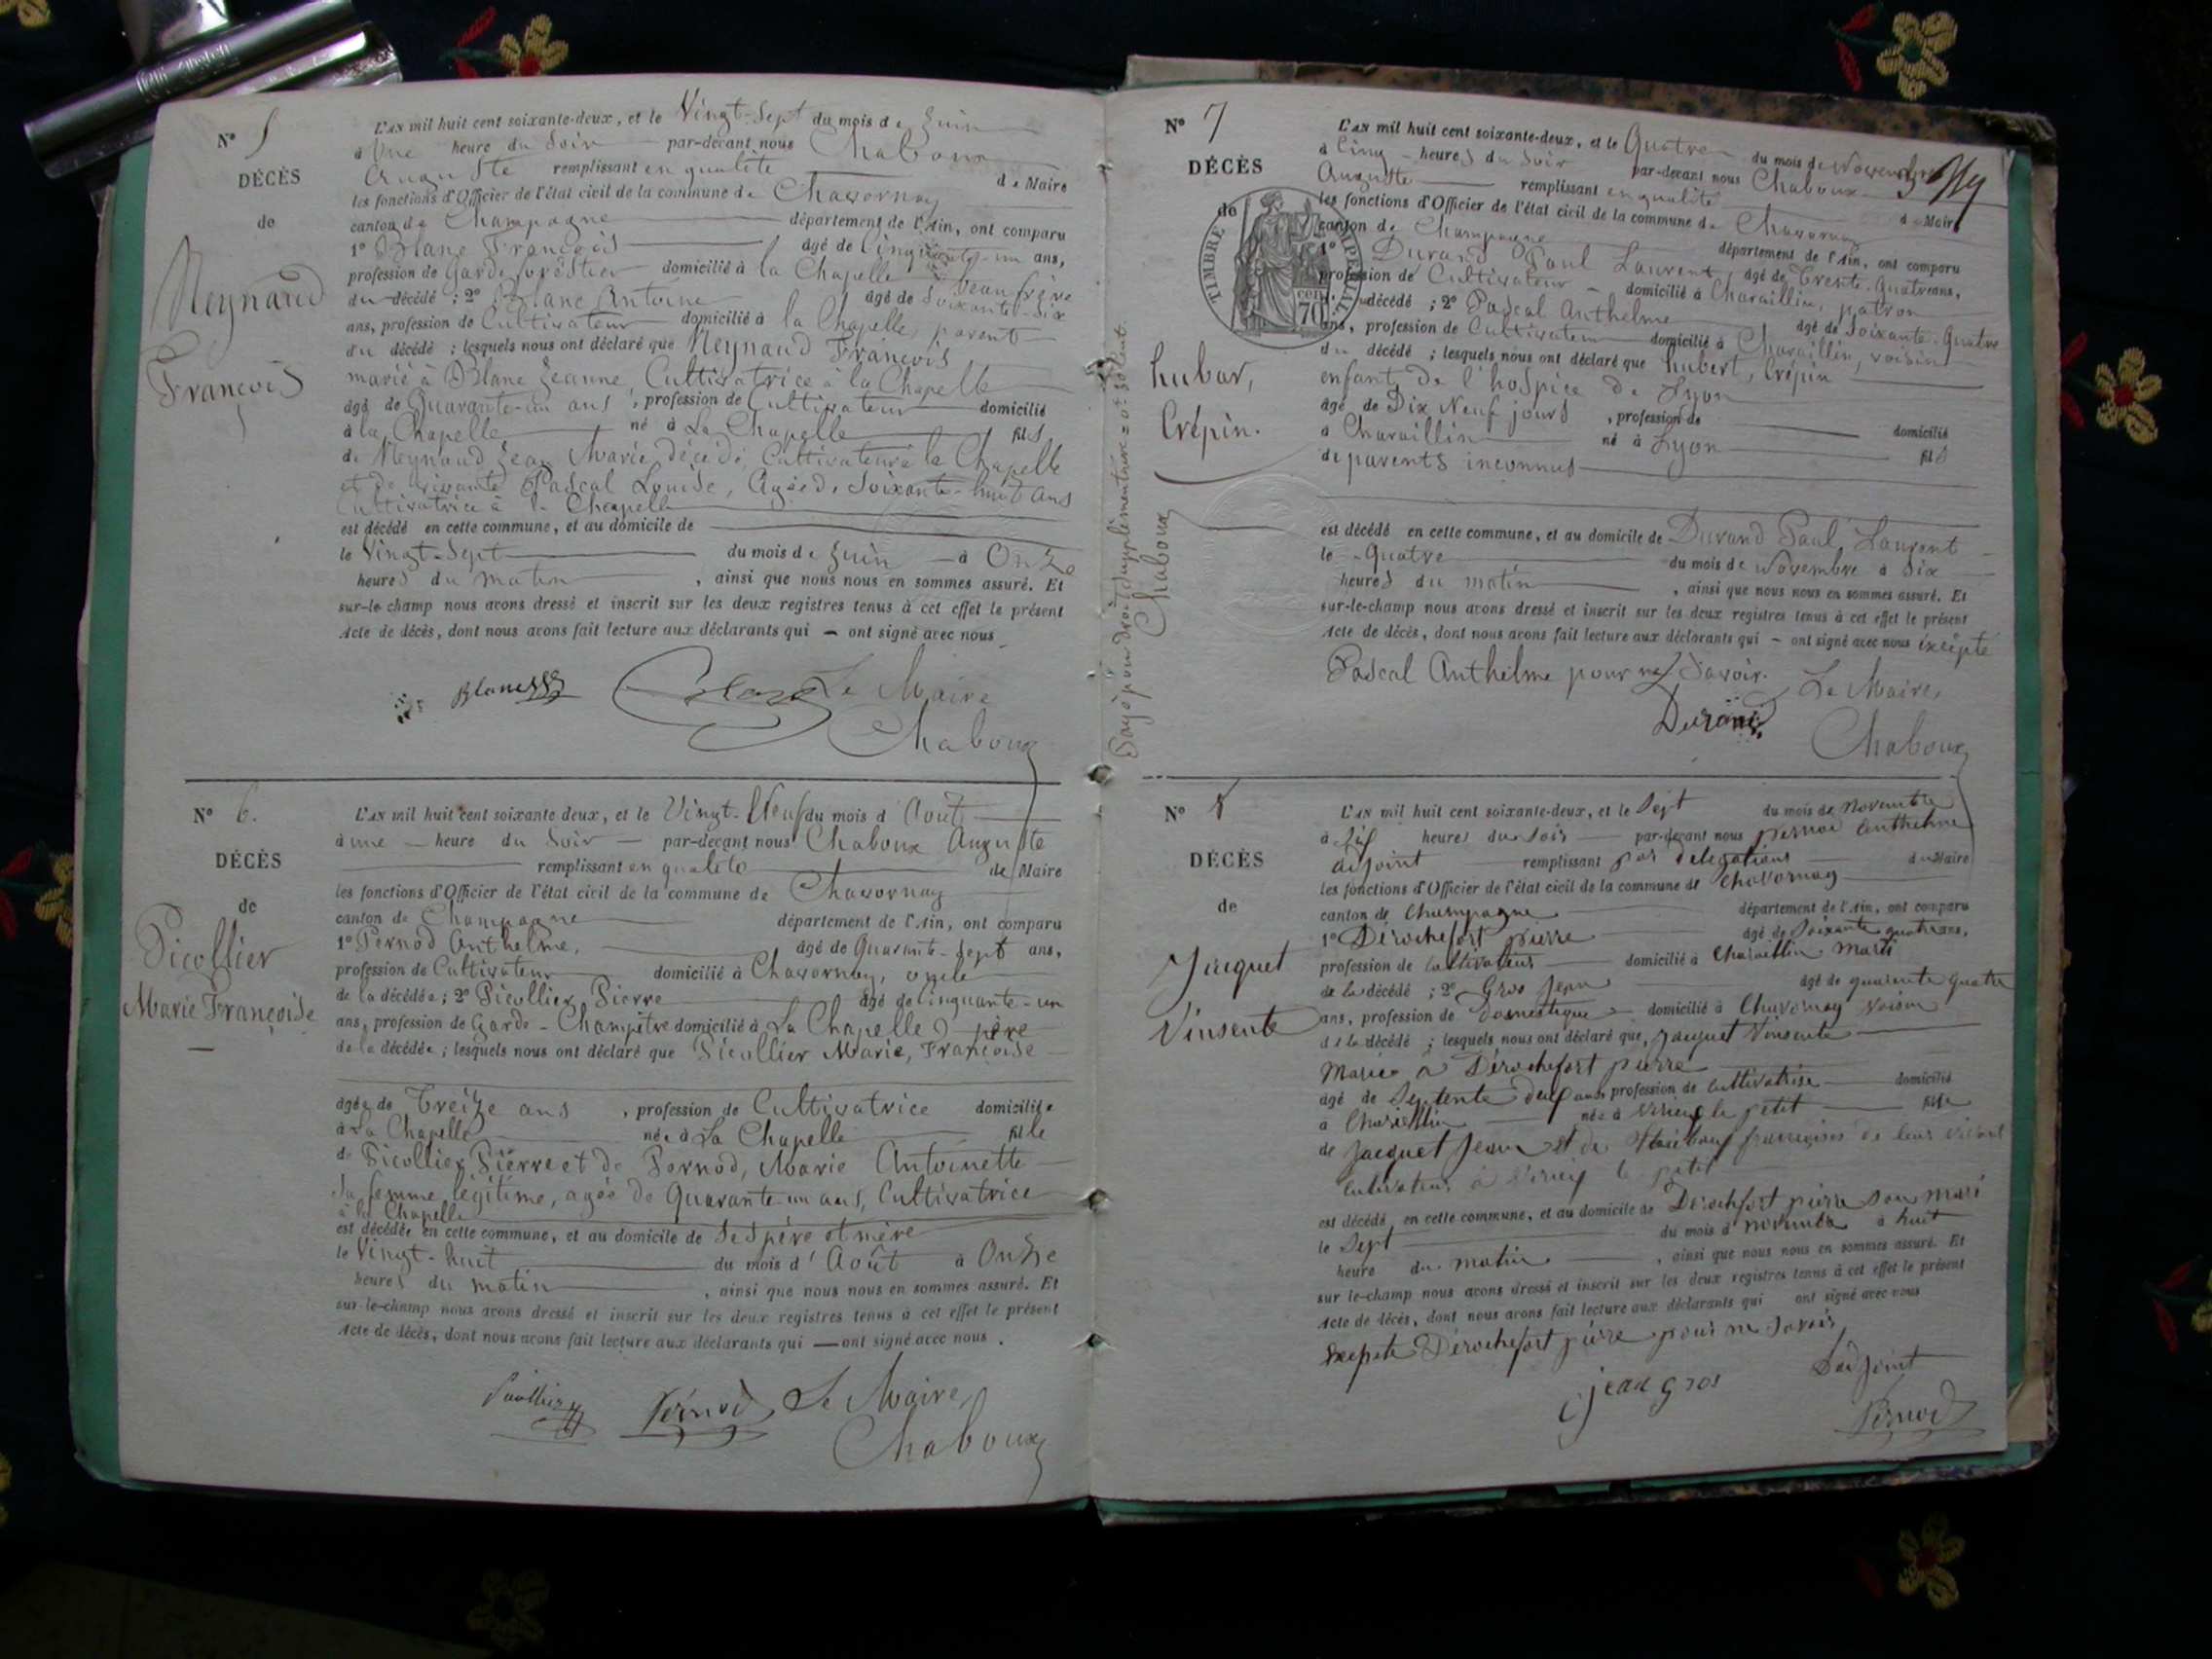 N° 5
DÉCÈS
de
Neynaud
François
L'AN mil huit cent soixante-deux, et le Vingt-Sept du mois de Juin
à Une heure du Soir par-devant nous Chaboux
Auguste remplissant en qualité de Maire
les fonctions d'Officier de l'état civil de la commune de Chavornay
canton de Champagne département de l'Ain, ont comparu
1° Blanc François âgé de Cinquante-un ans,
profession de Garde forestier domicilié à la Chapelle beau frère
du décédé ; 2° Blanc Antoine âgé de Soixante-dix
ans, profession de Cultivateur domicilié à la Chapelle, parent
du décédé ; lesquels nous ont déclaré que Neynaud François
marié à Blanc Jeanne, Cultivatrice à la Chapelle
âgé de Quarante-un ans, profession de Cultivateur domicilié
à la Chapelle né à La Chapelle fils
de Neynaud Jean Marie, décédé, Cultivateur à la Chapelle
et de vivante Pascal Louise, Agée de Soixante-huit ans
Cultivatrice à la Chapelle
est décédé en cette commune, et au domicile de
le Vingt-Sept du mois de Juin à Onze
heures du matin, ainsi que nous nous en sommes assuré. Et
sur-le-champ nous avons dressé et inscrit sur les deux registres tenus à cet effet le présent
Acte de décès, dont nous avons fait lecture aux déclarants qui – ont signé avec nous
Blanc Blanc Le Maire
Chaboux
N° 6.
DÉCÈS
de
Picollier
Marie Françoise
L'AN mil huit cent soixante deux, et le Vingt-Neuf du mois d'Août
à une heure du Soir par-devant nous Chaboux Auguste
remplissant en qualité de Maire
les fonctions d'Officier de l'état civil de la commune de Chavornay
canton de Champagne département de l'Ain, ont comparu
1° Pernod Anthelme, âgé de Quarante-Sept ans,
profession de Cultivateur domicilié à Chavornay, oncle
de la décédée ; 2° Picollier Pierre âgé de Cinquante-un
ans, profession de Garde-Champêtre domicilié à La Chapelle père
de la décédée ; lesquels nous ont déclaré que Picollier Marie, Françoise
âgée de Treize ans, profession de Cultivatrice domiciliée
à La Chapelle née à La Chapelle fille
de Picollier Pierre et de Pernod, Marie Antoinette
Sa femme légitime, agée de Quarante-un ans, Cultivatrice
à la Chapelle
est décédée en cette commune, et au domicile de Ses père et mère
le Vingt-huit du mois d'Août à Onze
heures du matin, ainsi que nous nous en sommes assuré. Et
sur-le-champ nous avons dressé et inscrit sur les deux registres tenus à cet effet le présent
Acte de décès, dont nous avons fait lecture aux déclarants qui — ont signé avec nous.
Picollier Pernod Le Maire,
Chaboux
Payé pour droit supplémentaire
Chaboux
N° 7
DÉCÈS
de
TIMBRE IMPÉRIAL
70 cen
hubert,
Crépin.
L'AN mil huit cent soixante-deux, et le Quatre du mois de Novembre
à Cinq heures du Soir par-devant nous Chaboux
Auguste remplissant en qualité de Maire
les fonctions d'Officier de l'état civil de la commune de Chavornay
canton de Champagne département de l'Ain, ont comparu
1° Durand Paul Laurent, âgé de Trente-Quatre ans,
profession de Cultivateur domicilié à Charaillin, patron
du décédé ; 2° Pascal Anthelme âgé de Soixante-Quatre
ans, profession de Cultivateur domicilié à Charaillin, voisin
du décédé ; lesquels nous ont déclaré que hubert, Crépin
enfant de l'hospice de Lyon
âgé de Dix Neuf jours, profession de domicilié
à Charaillin né à Lyon fils
de parents inconnus
est décédé en cette commune, et au domicile de Durand Paul Laurent
le Quatre du mois de Novembre à Six
heures du matin, ainsi que nous nous en sommes assuré. Et
sur-le-champ nous avons dressé et inscrit sur les deux registres tenus à cet effet le présent
Acte de décès, dont nous avons fait lecture aux déclarants qui – ont signé avec nous excepté
Pascal Anthelme pour ne Savoir. Le Maire,
Durand
Chaboux
N° 8
DÉCÈS
de
Jacquet
Vinsente
L'AN mil huit cent soixante-deux, et le Sept du mois de novembre
à heures du Soir par-devant nous pernod Anthelme
adjoint remplissant par délégations du Maire
les fonctions d'Officier de l'état civil de la commune de Chavornay
canton de Champagne département de l'Ain, ont comparu
1° Dérochefort pierre âgé de Soixante quatre ans,
profession de Cultivateur domicilié à Charaillin Mari
de la décédé ; 2° Gros Jean âgé de quarante quatre
ans, profession de Domestique domicilié à Chavornay Voisin
de la décédé ; lesquels nous ont déclaré que, Jacquet Vinsente
Mariée à Dérochefort pierre
âgé de Septente deux ans, profession de Cultivatrise domicilié
à Charaillin née à Virieu le petit fille
de Jacquet Jean et de françoise de leur vivant
Cultivateurs à Virieu le petit
est décédé en cette commune, et au domicile de Dérochefort pierre son mari
le Sept du mois d novembre à huit
heure du matin, ainsi que nous nous en sommes assuré. Et
sur le-champ nous avons dressé et inscrit sur les deux registres tenus à cet effet le présent
Acte de décès, dont nous avons fait lecture aux déclarants qui ont signé avec nous
Excepté Dérochefort pierre pour ne Savoir
jean gros L'adjoint
Pernod